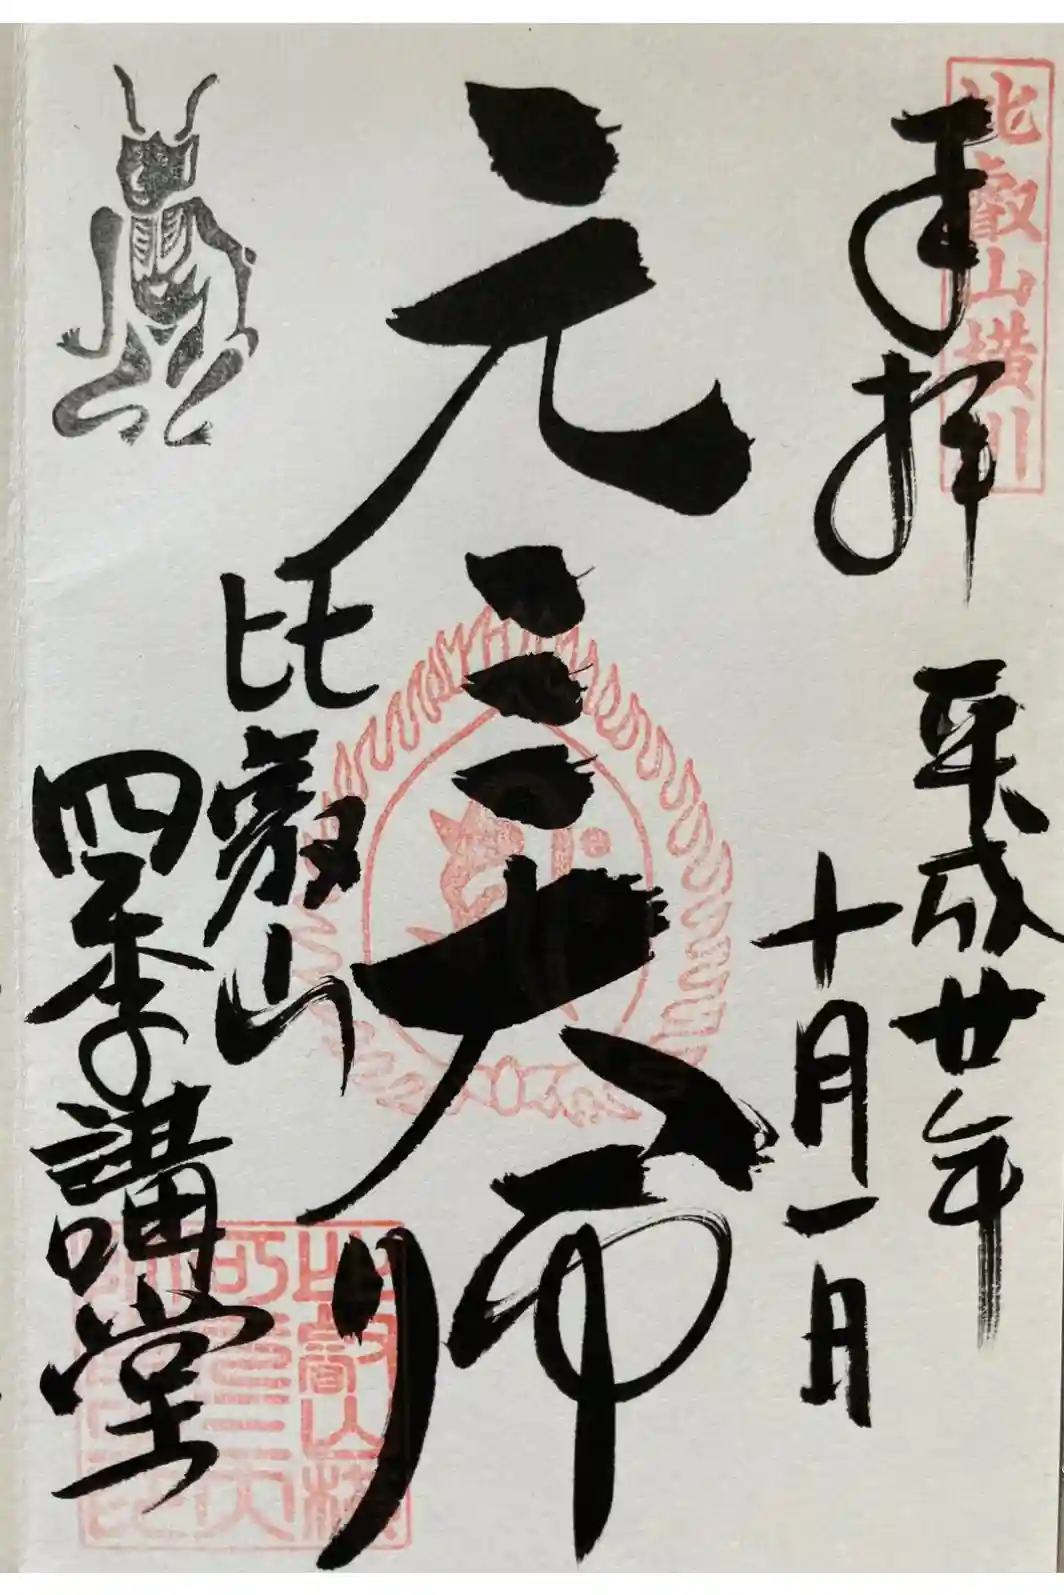 比叡山横川
奉拝
平成廿年
十月一日
元三大師
比叡山
四季講堂